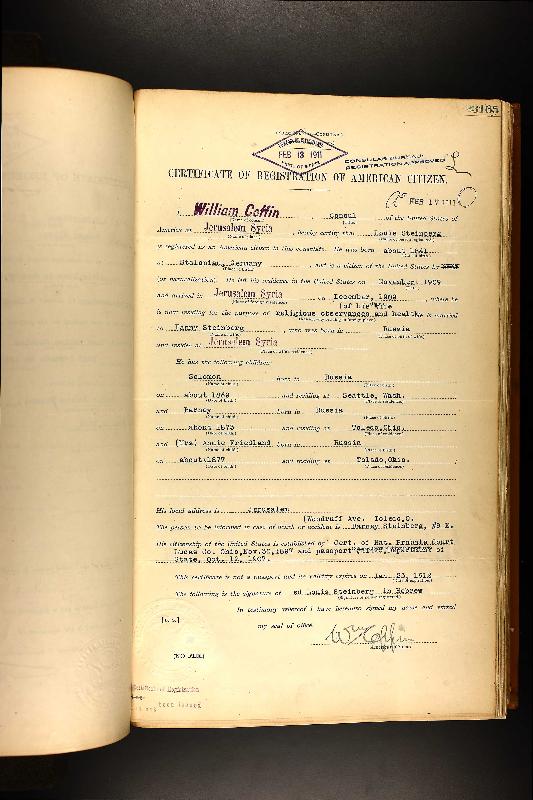 3165
FEB 13 1911
CONSULAR BUREAU
REGISTRATION APPROVED
CERTIFICATE OF REGISTRATION OF AMERICAN CITIZEN.
FEB 17 1911
I, William Coffin, Consul of the United States of
America at Jerusalem Syria, hereby certify that Louis Steinberg
is registered as an American citizen in this consulate. He was born about 1841
at Germany, and is a citizen of the United States by
(or naturalization). He left his residence in the United States on November, 1909
and arrived in Jerusalem Syria on December, 1909, where he
(of his wife
is now residing for the purpose of religious observances and health. is married
to Steinberg, who was born in Russia
and resides at Jerusalem Syria
He has the following children:
Solomon born in Russia
on about 1869 and residing at Seattle, Wash.
and Barney born in Russia
on about 1873 and residing at Toledo, Ohio.
and (Mrs) Annie Friedland born in Russia
on about 1877 and residing at Toledo, Ohio.
His local address is Jerusalem
(Woodruff Ave. Toledo, O.
The person to be informed in case of death or accident is Barney Steinberg, #8 E.
His citizenship of the United States is established by Cert. of Nat. Probate Court
Lucas Co. Ohio, Nov. 30, 1897 and passport issued, Department of
State, Oct. 12, 1907.
This certificate is not a passport and its validity expires on Jan. 23, 1912
The following is the signature of sd Louis Steinberg in Hebrew
In testimony whereof I have hereunto signed my name and affixed
my seal of office.
[L. S.]
Wm Coffin
American Consul
[NO FEE.]